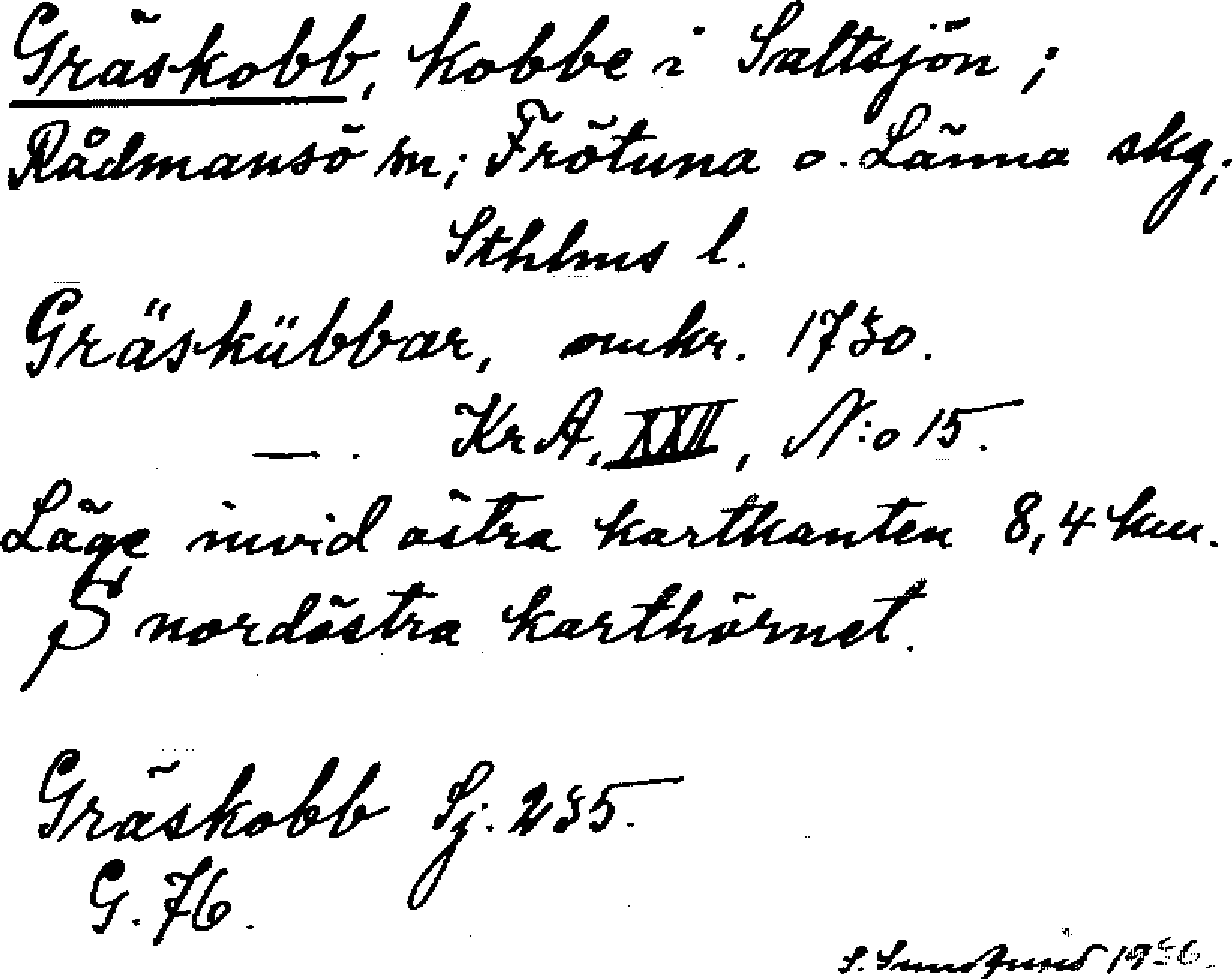 Gräskobb, kobbe i Saltsjön;
Rådmansö sn; Frötuna o. Länna skg,
Sthlms l.
Gräskübbar, omkr. 1730.
—. KrA, XXII, N:o 15.
Läge invid östra kartkanten 8,4 km.
S nordöstra karthörnet.
Gräskobb Sj. 235.
G. 76.
S. 1936.